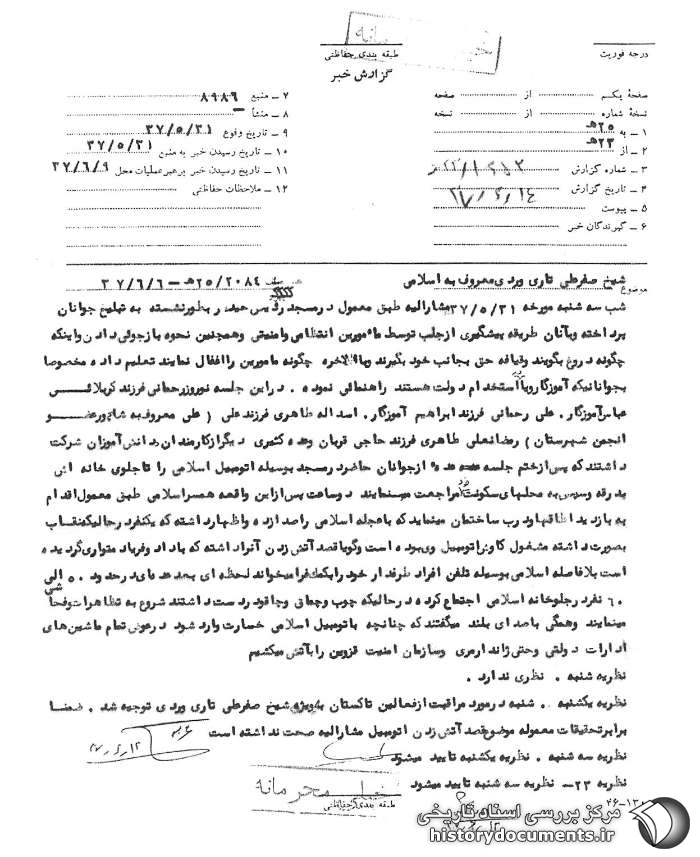 درجه فوریت
طبقه بندی حفاظتی
گزارش خبر
صفحهٔ یکم از صفحه
نسخهٔ شماره از نسخه
۱ - به ۲۵هـ
۲ - از ۲۳هـ
۳ - شماره گزارش
۴ - تاریخ گزارش
۵ - پیوست
۶ - گیرندگان خبر
۷ - منبع ۸۹۸۶
۸ - منشأ -
۹ - تاریخ وقوع ۳۷/۵/۳۱
۱۰ - تاریخ رسیدن خبر به منبع ۳۷/۵/۳۱
۱۱ - تاریخ رسیدن خبر برهبر عملیات محل ۳۷/۶/۹
۱۲ - ملاحظات حفاظتی
موضوع شیخ صفرعلی تاری وردی معروف به اسلامی ۲۵/۲۰۸۴هـ - ۳۷/۶/۶
شب سه شنبه مورخه ۳۷/۵/۳۱ مشارالیه طبق معمول در مسجد بطور نشسته به تبلیغ جوانان
پرداخته و بآنان طریقه پیشگیری از جلب توسط مامورین انتظامی وامنیتی وهمچنین نحوه بازجوئی دادن واینکه
چگونه دروغ بگویند وقیافه حق بجانب خود بگیرند وبالاخره چگونه مامورین را اغفال نمایند تعلیم داده مخصوصا
بجوانانیکه آموزگار ویا استخدام دولت هستند راهنمائی نموده . در این جلسه نوروز رحمانی فرزند کربلائی
عباس آموزگار . علی رحمانی فرزند ابراهیم آموزگار . اسداله طاهری فرزند علی ( علی معروف به عضو
انجمن شهرستان ) رمضانعلی طاهری فرزند حاجی قربان وعده کثیری دیگر از کارمندان ودانش آموزان شرکت
داشتند که پس از ختم جلسه عده از جوانان حاضر در مسجد بوسیله اتومبیل اسلامی را تا جلوی خانه اش
بدرقه وسپس به محلهای سکونت خود مراجعت مینمایند دو ساعت پس از این واقعه همسر اسلامی طبق معمول اقدام
به بازدید اطاقها ودرب ساختمان مینماید که با عجله اسلامی را صدا زده واظهار داشته که یکنفر در حالیکه نقاب
بصورت داشته مشغول کاوش اتومبیل وی بوده است وگویا قصد آتش زدن آنرا داشته که با داد وفریاد متواری گردیده
است بلافاصله اسلامی بوسیله تلفن افراد طرفدار خود را بکمک فرا میخواند لحظه ای بعد عده ای در حدود ۵۰ الی
۶۰ نفر در جلو خانه اسلامی اجتماع کرده در حالیکه چوب وچماق وچاقو در دست داشتند شروع به تظاهرات وفحاشی
مینمایند وهمگی با صدای بلند میگفتند که چنانچه باتومبیل اسلامی خسارت وارد شود در عوض تمام ماشین های
ادارات دولتی وحتی ژاندارمری وسازمان امنیت قزوین را بآتش میکشیم
نظریه شنبه . نظری ندارد .
نظریه یکشنبه . شنبه در مورد مراقبت از فعالین تاکستان بویژه شیخ صفرعلی تاری وردی توجیه شد . ضمنا
برابر تحقیقات معموله موضوع قصد آتش زدن اتومبیل مشارالیه صحت نداشته است
نظریه سه شنبه . نظریه یکشنبه تایید میشود
نظریه ۲۳- نظریه سه شنبه تایید میشود
خیلی محرمانه
طبقه بندی حفاظتی
مرکز بررسی اسناد تاریخی
historydocuments.ir